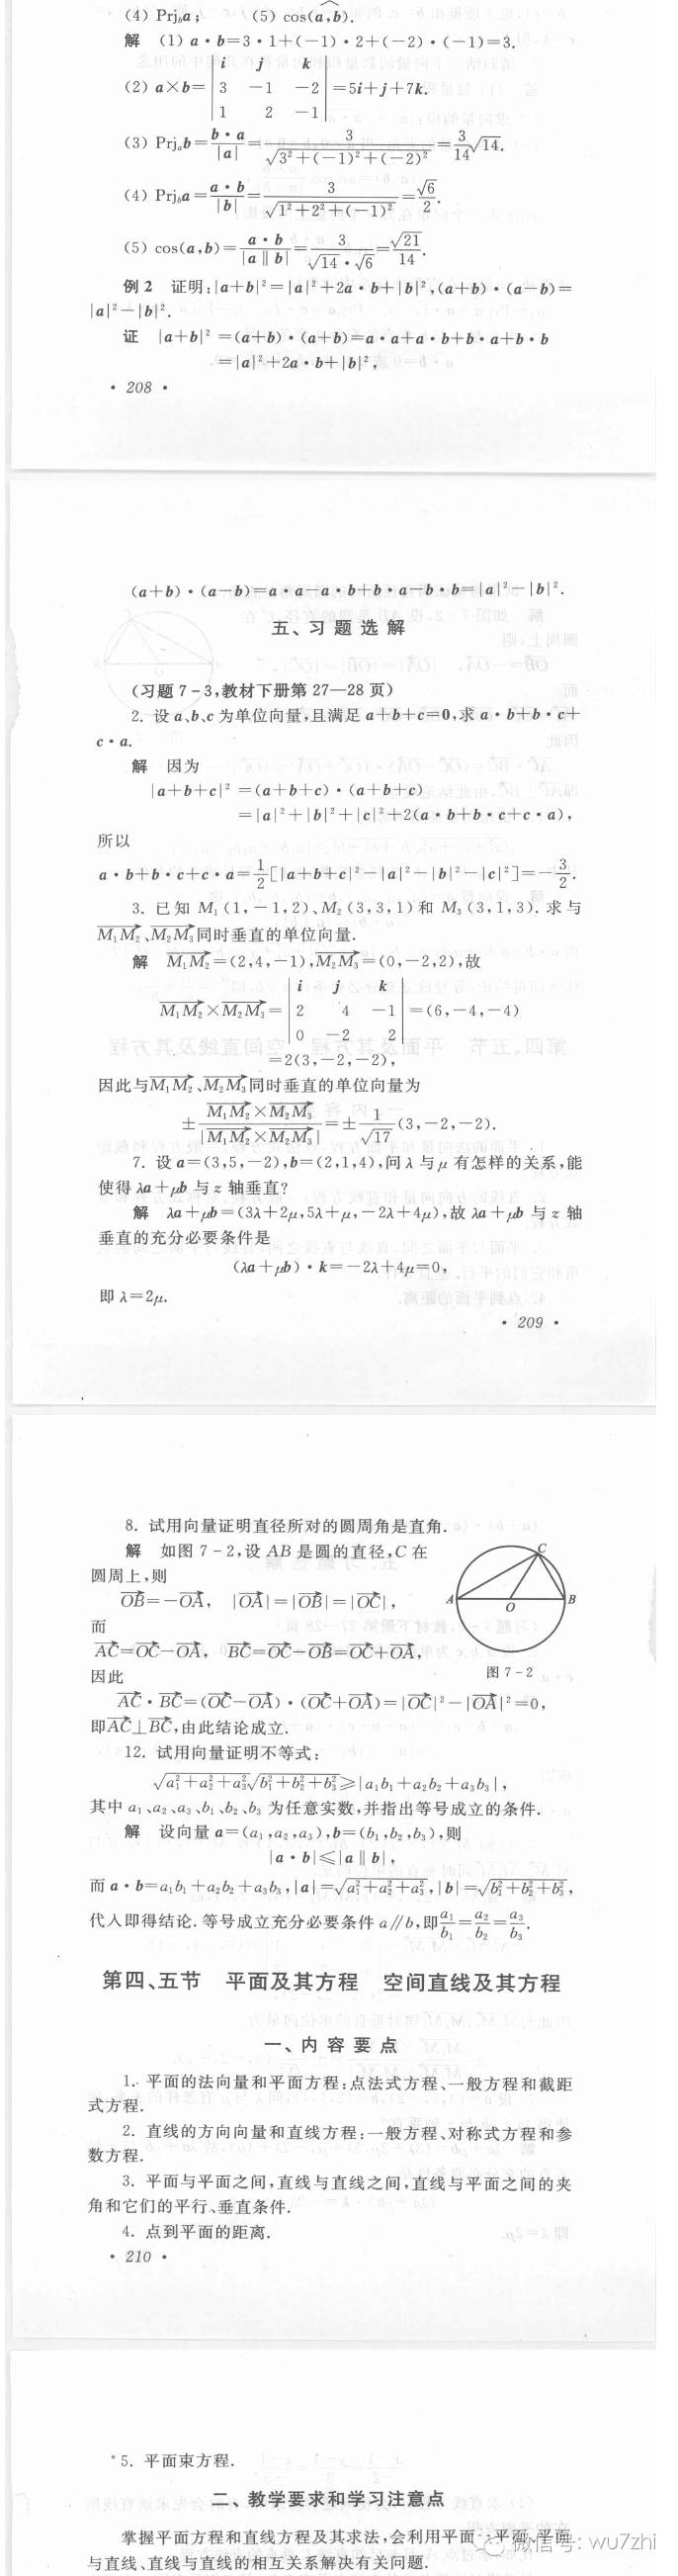 (4) Prj_b a; (5) cos(a,b).
解 (1) a·b=3·1+(-1)·2+(-2)·(-1)=3.
(2) a×b=|i j k; 3 -1 -2; 1 2 -1|=5i+j+7k.
(3) Prj_a b=b·a/|a|=3/√(3²+(-1)²+(-2)²)=3/14√14.
(4) Prj_b a=a·b/|b|=3/√(1²+2²+(-1)²)=√6/2.
(5) cos(a,b)=a·b/|a‖b|=3/(√14·√6)=√21/14.
例2 证明:|a+b|²=|a|²+2a·b+|b|²,(a+b)·(a-b)=
|a|²-|b|².
证 |a+b|²=(a+b)·(a+b)=a·a+a·b+b·a+b·b
=|a|²+2a·b+|b|²,
· 208 ·
(a+b)·(a-b)=a·a-a·b+b·a-b·b=|a|²-|b|².
五、习题选解
(习题7-3,教材下册第27—28页)
2. 设a、b、c为单位向量,且满足a+b+c=0,求a·b+b·c+
c·a.
解 因为
|a+b+c|²=(a+b+c)·(a+b+c)
=|a|²+|b|²+|c|²+2(a·b+b·c+c·a),
所以
a·b+b·c+c·a=1/2[|a+b+c|²-|a|²-|b|²-|c|²]=-3/2.
3. 已知M₁(1,-1,2)、M₂(3,3,1)和M₃(3,1,3).求与
M₁M₂、M₂M₃同时垂直的单位向量.
解 M₁M₂=(2,4,-1),M₂M₃=(0,-2,2),故
M₁M₂×M₂M₃=|i j k; 2 4 -1; 0 -2 2|=(6,-4,-4)
=2(3,-2,-2),
因此与M₁M₂、M₂M₃同时垂直的单位向量为
±M₁M₂×M₂M₃/|M₁M₂×M₂M₃|=±1/√17(3,-2,-2).
7. 设a=(3,5,-2),b=(2,1,4),问λ与μ有怎样的关系,能
使得λa+μb与z轴垂直?
解 λa+μb=(3λ+2μ,5λ+μ,-2λ+4μ),故λa+μb与z轴
垂直的充分必要条件是
(λa+μb)·k=-2λ+4μ=0,
即λ=2μ.
· 209 ·
8. 试用向量证明直径所对的圆周角是直角.
解 如图7-2,设AB是圆的直径,C在
圆周上,则
OB=-OA, |OA|=|OB|=|OC|,
而
AC=OC-OA, BC=OC-OB=OC+OA,
因此
C
A
O
B
图7-2
AC·BC=(OC-OA)·(OC+OA)=|OC|²-|OA|²=0,
即AC⊥BC,由此结论成立.
12. 试用向量证明不等式:
√(a₁²+a₂²+a₃²)√(b₁²+b₂²+b₃²)≥|a₁b₁+a₂b₂+a₃b₃|,
其中a₁、a₂、a₃、b₁、b₂、b₃为任意实数,并指出等号成立的条件.
解 设向量a=(a₁,a₂,a₃),b=(b₁,b₂,b₃),则
|a·b|≤|a‖b|,
而a·b=a₁b₁+a₂b₂+a₃b₃,|a|=√(a₁²+a₂²+a₃²),|b|=√(b₁²+b₂²+b₃²),
代入即得结论.等号成立充分必要条件a∥b,即a₁/b₁=a₂/b₂=a₃/b₃.
第四、五节 平面及其方程 空间直线及其方程
一、内容要点
1. 平面的法向量和平面方程:点法式方程、一般方程和截距
式方程.
2. 直线的方向向量和直线方程:一般方程、对称式方程和参
数方程.
3. 平面与平面之间,直线与直线之间,直线与平面之间的夹
角和它们的平行、垂直条件.
4. 点到平面的距离.
· 210 ·
*5. 平面束方程.
二、教学要求和学习注意点
掌握平面方程和直线方程及其求法,会利用平面与平面、平面
与直线、直线与直线的相互关系解决有关问题.
微信号: wu7zhi